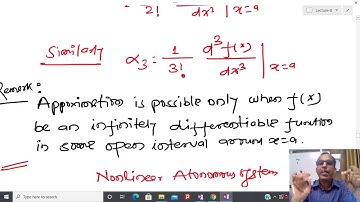 2! dx² | x=a
Similarly α₃ = 1/3! d³f(x)/dx³ | x=a
Remark:
Approximation is possible only when f(x)
be an infinitely differentiable function
in some open interval around x=a.
Nonlinear Autonomous system
Type here to search